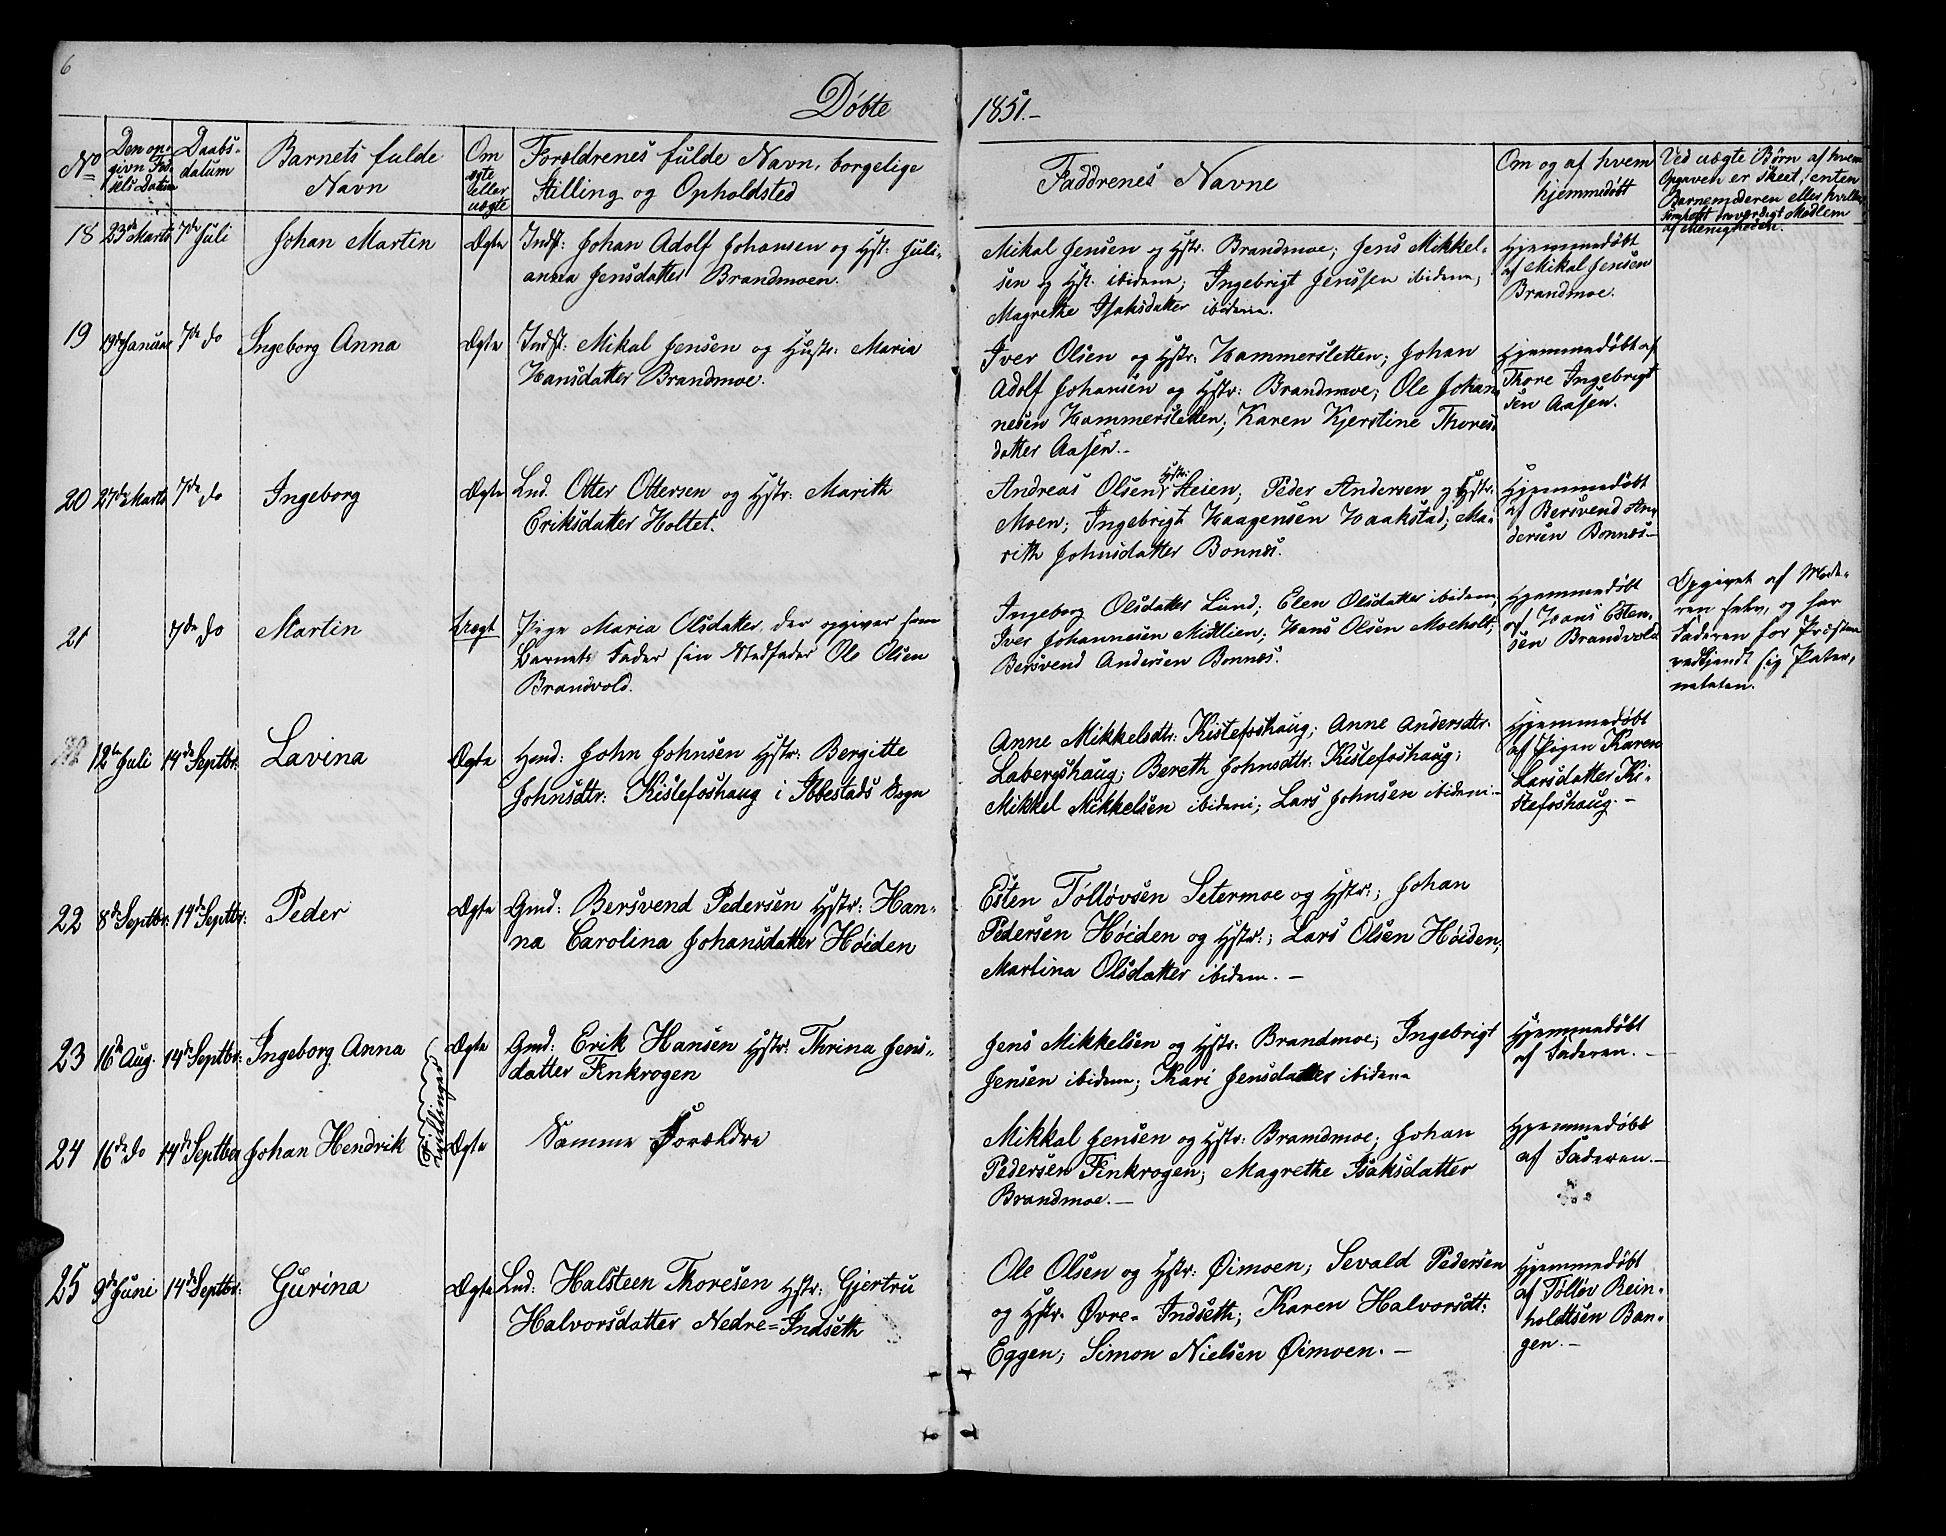 6
Døbte 1851.-
No
Den op-
givn Fød-
sels Datum
Daabs-
datum
Barnets fulde
Navn
Om
ægte
eller
uægte
Forældrenes fulde Navn, borgelige
Stilling og Opholdsted
Faddrenes Navne
Om og af hvem
hjemmedøbt
Ved uægte Børn af hvem
Opgaven er skeet, enten
Barnemoderen eller hvilket
somhelst troværdigt Medlem
af Menigheden.
18 23de Marts 7de Juli Johan Martin Ægte
Indst: Johan Adolf Johansen og Hst: Juli-
anna Jensdatter Brandmoen.
Mikal Jensen og Hstr: Brandmoe; Jens Mikkel-
sen og Hst. ibidem; Ingebrigt Jenssen ibidem;
Magrethe Isaksdatter ibidem.
Hjemmedøbt
af Mikal Jensen
Brandmoe.
19 19de Januar 7de do Ingeborg Anna Ægte
Indst: Mikal Jensen og Hustr: Maria
Hansdatter Brandmoe.
Iver Olsen og Hstr: Hammersletten; Johan
Adolf Johansen og Hstr: Brandmoe; Ole Johan-
nesen Hammersletten; Karen Kjerstine Thores-
datter Aasen.-
Hjemmedøbt af
Thore Ingebrigt
sen Aasen.
20 27de Marts 7de do Ingeborg Ægte
Lnd. Otter Ottersen og Hstr: Marith
Eriksdatter Holtet.
Andreas Olsen Hstr: Steien; Peder Andersen og Hstr:
Moen; Ingebrigt Haagensen Haakstad; Ma-
rith Johnsdatter Bonnes.
Hjemmedøbt
af Bersvend An-
dersen Bonnes-
21 7de do Martin Uægt
Pige Maria Olsdatter, der opgiver som
Barnets Fader sin Stedfader Ole Olsen
Brandvold.
Ingeborg Olsdatter Lund; Elen Olsdatter ibidem;
Iver Johannesen Mittlien; Hans Olsen Moeholt;
Bersvend Andersen Bonnes.
Hjemmedøbt
af Hans Esten-
sen Brandvold
Opgivet af Mode-
ren selv, og har
Faderen for Præsten
vedkjendt sig Pater-
niteten.
12te Juli 14de Septbr: Lavina Ægte
Hmd: John Johnsen Hstr: Bergitte
Johnsdtr: Kistefoshaug i Ibbestads Sogn
Anne Mikkelsdtr: Kistefoshaug; Anne Andersdtr:
Labergshaug; Bereth Johnsdtr: Kistefoshaug;
Mikkel Mikkelsen ibidem; Lars Johnsen ibidem.-
Hjemmedøbt
af Pigen Karen
Larsdatter Ki-
stefoshaug.-
22 8de Septbr: 14de Septbr: Peder Ægte
Gmd: Bersvend Pedersen Hstr: Han-
na Carolina Johansdatter Høiden
Esten Tølløvsen Setermoe og Hstr:; Johan
Pedersen Høiden og Hstr:; Lars Olsen Høiden;
Martina Olsdatter ibidem.-
23 16de Aug. 14de Septbr: Ingeborg Anna Ægte
Gmd: Erik Hansen Hstr: Thrina Jens-
datter Finkrogen
Jens Mikkelsen og Hstr: Brandmoe; Ingebrigt
Jensen ibidem; Kari Jensdatter ibidem
Hjemmedøbt
af Faderen.-
Tvillinger
24 16de do 14de Septber Johan Hendrik Ægte
Samme Forældre
Mikkal Jensen og Hstr: Brandmoe; Johan
Pedersen Finkrogen; Magrethe Isaksdatter
Brandmoe.-
Hjemmedøbt
af Faderen.-
25 9de Juni 14de Septbr: Gurina Ægte
Lnd: Halsteen Thoresen Hstr: Gjertru
Halvorsdatter Nedre=Indseth
Ole Olsen og Hstr: Øimoen; Sevald Pedersen
og Hstr: Øvre-Indseth; Karen Halvorsdt:
Eggen; Simon Nielsen Øimoen.-
Hjemmedøbt
af Tølløv Rein-
holdtsen Ban-
gen.-